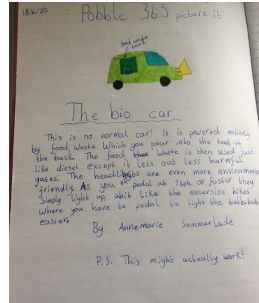 18/6/20
Pobble 365 picture it
food waste tank
The bio car
This is no normal car! It is powered entirely
by food waste which you pour into the tank at
the back. The food waste is then used just
like diesel except it lets out less harmful
gases. The headlights are even more environment
friendly. As you pedal at 1kph or faster they
simply light up, abit like the excersize bikes
where you have to pedal to light the bulb but
easier.
By Annemarie Sommerlade
P.S. This might actually work!